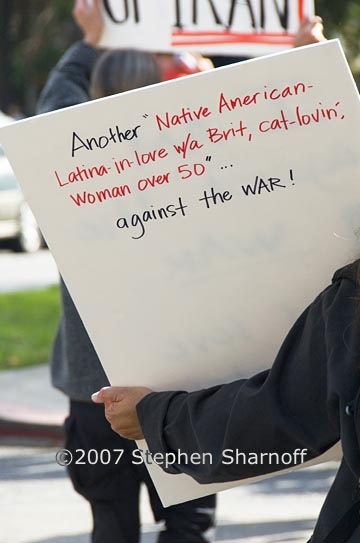 OF IRAN
Another "Native American-
Latina-in-love w/a Brit, cat-lovin',
Woman over 50" ...
against the WAR!
©2007 Stephen Sharnoff